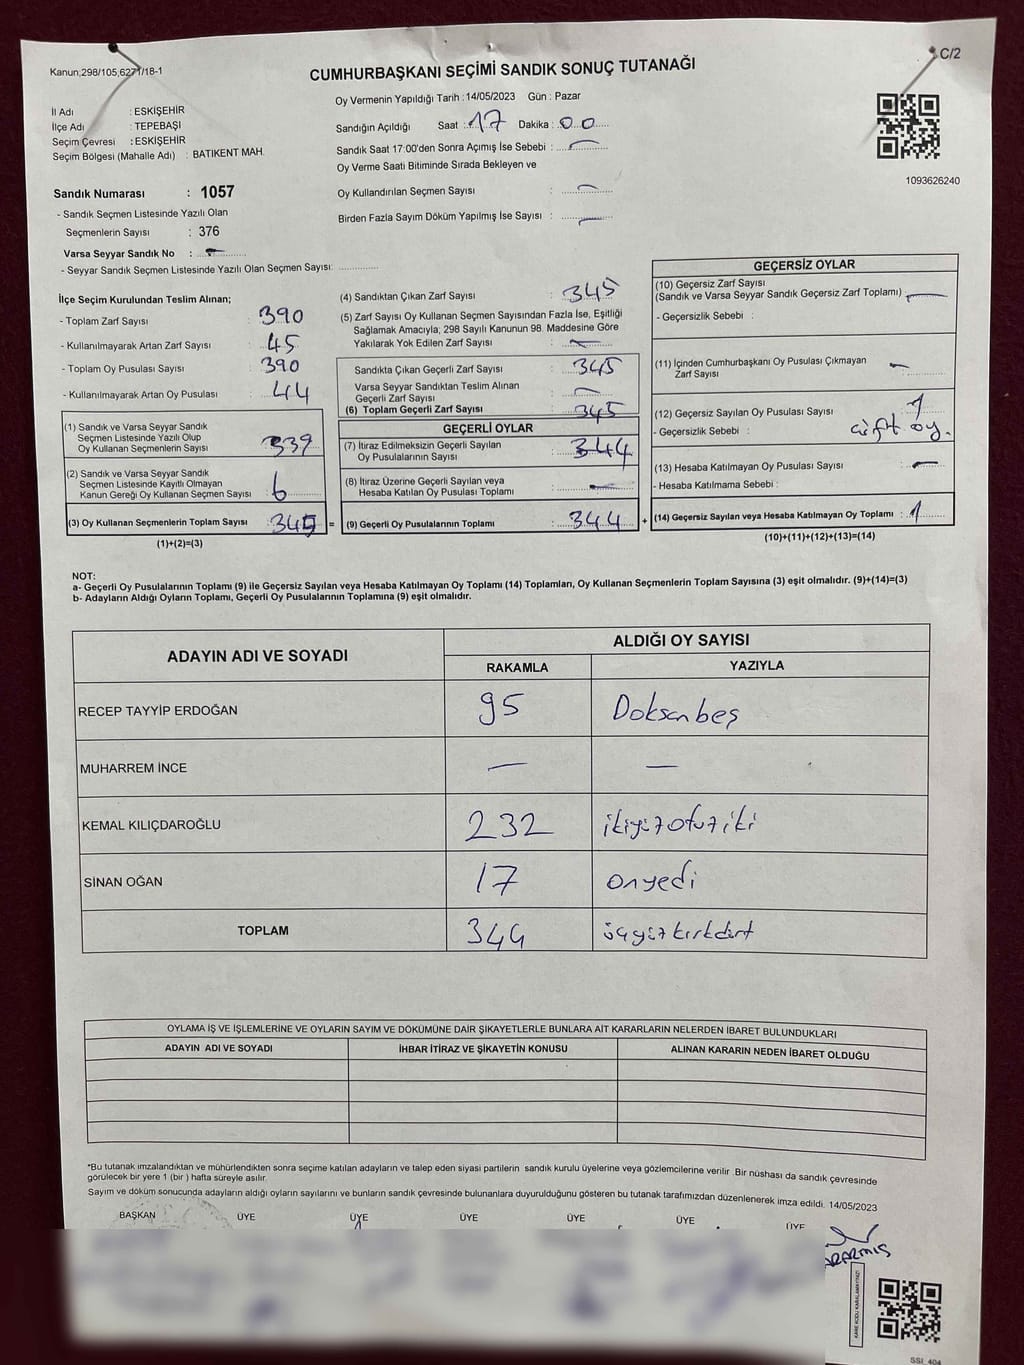 Kanun;298/105,6271/18-1
C/2
CUMHURBAŞKANI SEÇİMİ SANDIK SONUÇ TUTANAĞI
İl Adı : ESKİŞEHİR
İlçe Adı : TEPEBAŞI
Seçim Çevresi : ESKİŞEHİR
Seçim Bölgesi (Mahalle Adı) : BATIKENT MAH.
Oy Vermenin Yapıldığı Tarih : 14/05/2023 Gün : Pazar
Sandığın Açıldığı Saat : 17 Dakika : 00
Sandık Saat 17:00'den Sonra Açımış İse Sebebi : —
Oy Verme Saati Bitiminde Sırada Bekleyen ve
Oy Kullandırılan Seçmen Sayısı : —
Birden Fazla Sayım Döküm Yapılmış İse Sayısı : —
1093626240
Sandık Numarası : 1057
- Sandık Seçmen Listesinde Yazılı Olan
Seçmenlerin Sayısı : 376
Varsa Seyyar Sandık No : —
- Seyyar Sandık Seçmen Listesinde Yazılı Olan Seçmen Sayısı:
İlçe Seçim Kurulundan Teslim Alınan;
- Toplam Zarf Sayısı : 390
- Kullanılmayarak Artan Zarf Sayısı : 45
- Toplam Oy Pusulası Sayısı : 390
- Kullanılmayarak Artan Oy Pusulası : 44
(1) Sandık ve Varsa Seyyar Sandık
Seçmen Listesinde Yazılı Olup
Oy Kullanan Seçmenlerin Sayısı : 339
(2) Sandık ve Varsa Seyyar Sandık
Seçmen Listesinde Kayıtlı Olmayan
Kanun Gereği Oy Kullanan Seçmen Sayısı : 6
(3) Oy Kullanan Seçmenlerin Toplam Sayısı : 345 =
(1)+(2)=(3)
(4) Sandıktan Çıkan Zarf Sayısı : 345
(5) Zarf Sayısı Oy Kullanan Seçmen Sayısından Fazla İse, Eşitliği
Sağlamak Amacıyla; 298 Sayılı Kanunun 98. Maddesine Göre
Yakılarak Yok Edilen Zarf Sayısı : —
Sandıkta Çıkan Geçerli Zarf Sayısı : 345
Varsa Seyyar Sandıktan Teslim Alınan
Geçerli Zarf Sayısı : —
(6) Toplam Geçerli Zarf Sayısı : 345
GEÇERLİ OYLAR
(7) İtiraz Edilmeksizin Geçerli Sayılan
Oy Pusulalarının Sayısı : 344
(8) İtiraz Üzerine Geçerli Sayılan veya
Hesaba Katılan Oy Pusulası Toplamı : —
(9) Geçerli Oy Pusulalarının Toplamı : 344 +
GEÇERSİZ OYLAR
(10) Geçersiz Zarf Sayısı
(Sandık ve Varsa Seyyar Sandık Geçersiz Zarf Toplamı) —
- Geçersizlik Sebebi :
(11) İçinden Cumhurbaşkanı Oy Pusulası Çıkmayan —
Zarf Sayısı
(12) Geçersiz Sayılan Oy Pusulası Sayısı : 1
- Geçersizlik Sebebi : çift oy.
(13) Hesaba Katılmayan Oy Pusulası Sayısı : —
- Hesaba Katılmama Sebebi :
(14) Geçersiz Sayılan veya Hesaba Katılmayan Oy Toplamı : 1
(10)+(11)+(12)+(13)=(14)
NOT:
a- Geçerli Oy Pusulalarının Toplamı (9) ile Geçersiz Sayılan veya Hesaba Katılmayan Oy Toplamı (14) Toplamları, Oy Kullanan Seçmenlerin Toplam Sayısına (3) eşit olmalıdır. (9)+(14)=(3)
b- Adayların Aldığı Oyların Toplamı, Geçerli Oy Pusulalarının Toplamına (9) eşit olmalıdır.
ADAYIN ADI VE SOYADI
ALDIĞI OY SAYISI
RAKAMLA YAZIYLA
RECEP TAYYİP ERDOĞAN 95 Doksanbeş
MUHARREM İNCE — —
KEMAL KILIÇDAROĞLU 232 ikiyüzotuziki
SİNAN OĞAN 17 onyedi
TOPLAM 344 üçyüzkırkdört
OYLAMA İŞ VE İŞLEMLERİNE VE OYLARIN SAYIM VE DÖKÜMÜNE DAİR ŞİKAYETLERLE BUNLARA AİT KARARLARIN NELERDEN İBARET BULUNDUKLARI
ADAYIN ADI VE SOYADI İHBAR İTİRAZ VE ŞİKAYETİN KONUSU ALINAN KARARIN NEDEN İBARET OLDUĞU
*Bu tutanak imzalandıktan ve mühürlendikten sonra seçime katılan adayların ve talep eden siyasi partilerin sandık kurulu üyelerine veya gözlemcilerine verilir .Bir nüshası da sandık çevresinde
görülecek bir yere 1 (bir ) hafta süreyle asılır.
Sayım ve döküm sonucunda adayların aldığı oyların sayılarını ve bunların sandık çevresinde bulunanlara duyurulduğunu gösteren bu tutanak tarafımızdan düzenlenerek imza edildi. 14/05/2023
BAŞKAN ÜYE ÜYE ÜYE ÜYE ÜYE ÜYE
KARE KODU KARALAMAYINIZ!
SSI_404